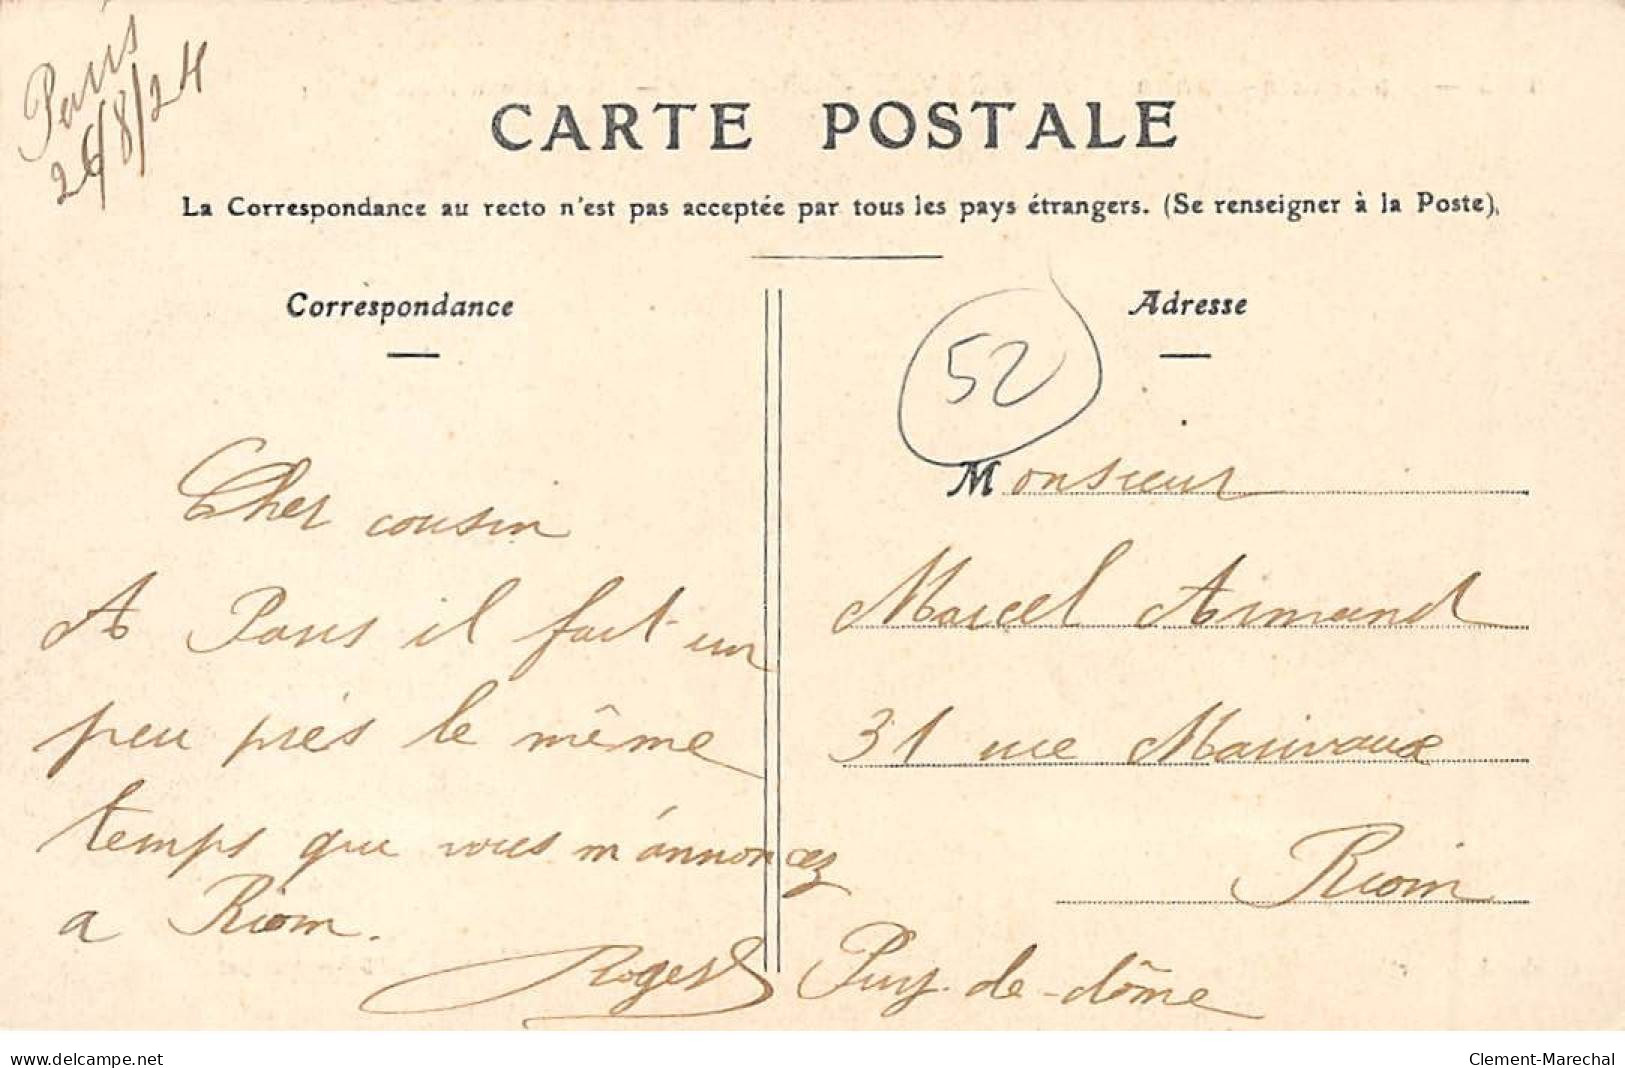 Paris
26/8/24
CARTE POSTALE
La Correspondance au recto n'est pas acceptée par tous les pays étrangers. (Se renseigner à la Poste).
Correspondance
Cher cousin
A Paris il fait un
peu près le même
temps que vous m'annoncez
a Riom.
Roger
Adresse
52
Monsieur
Marcel Armand
31 rue Marivaux
Riom
Puy-de-dôme
www.delcampe.net
Clement-Marechal